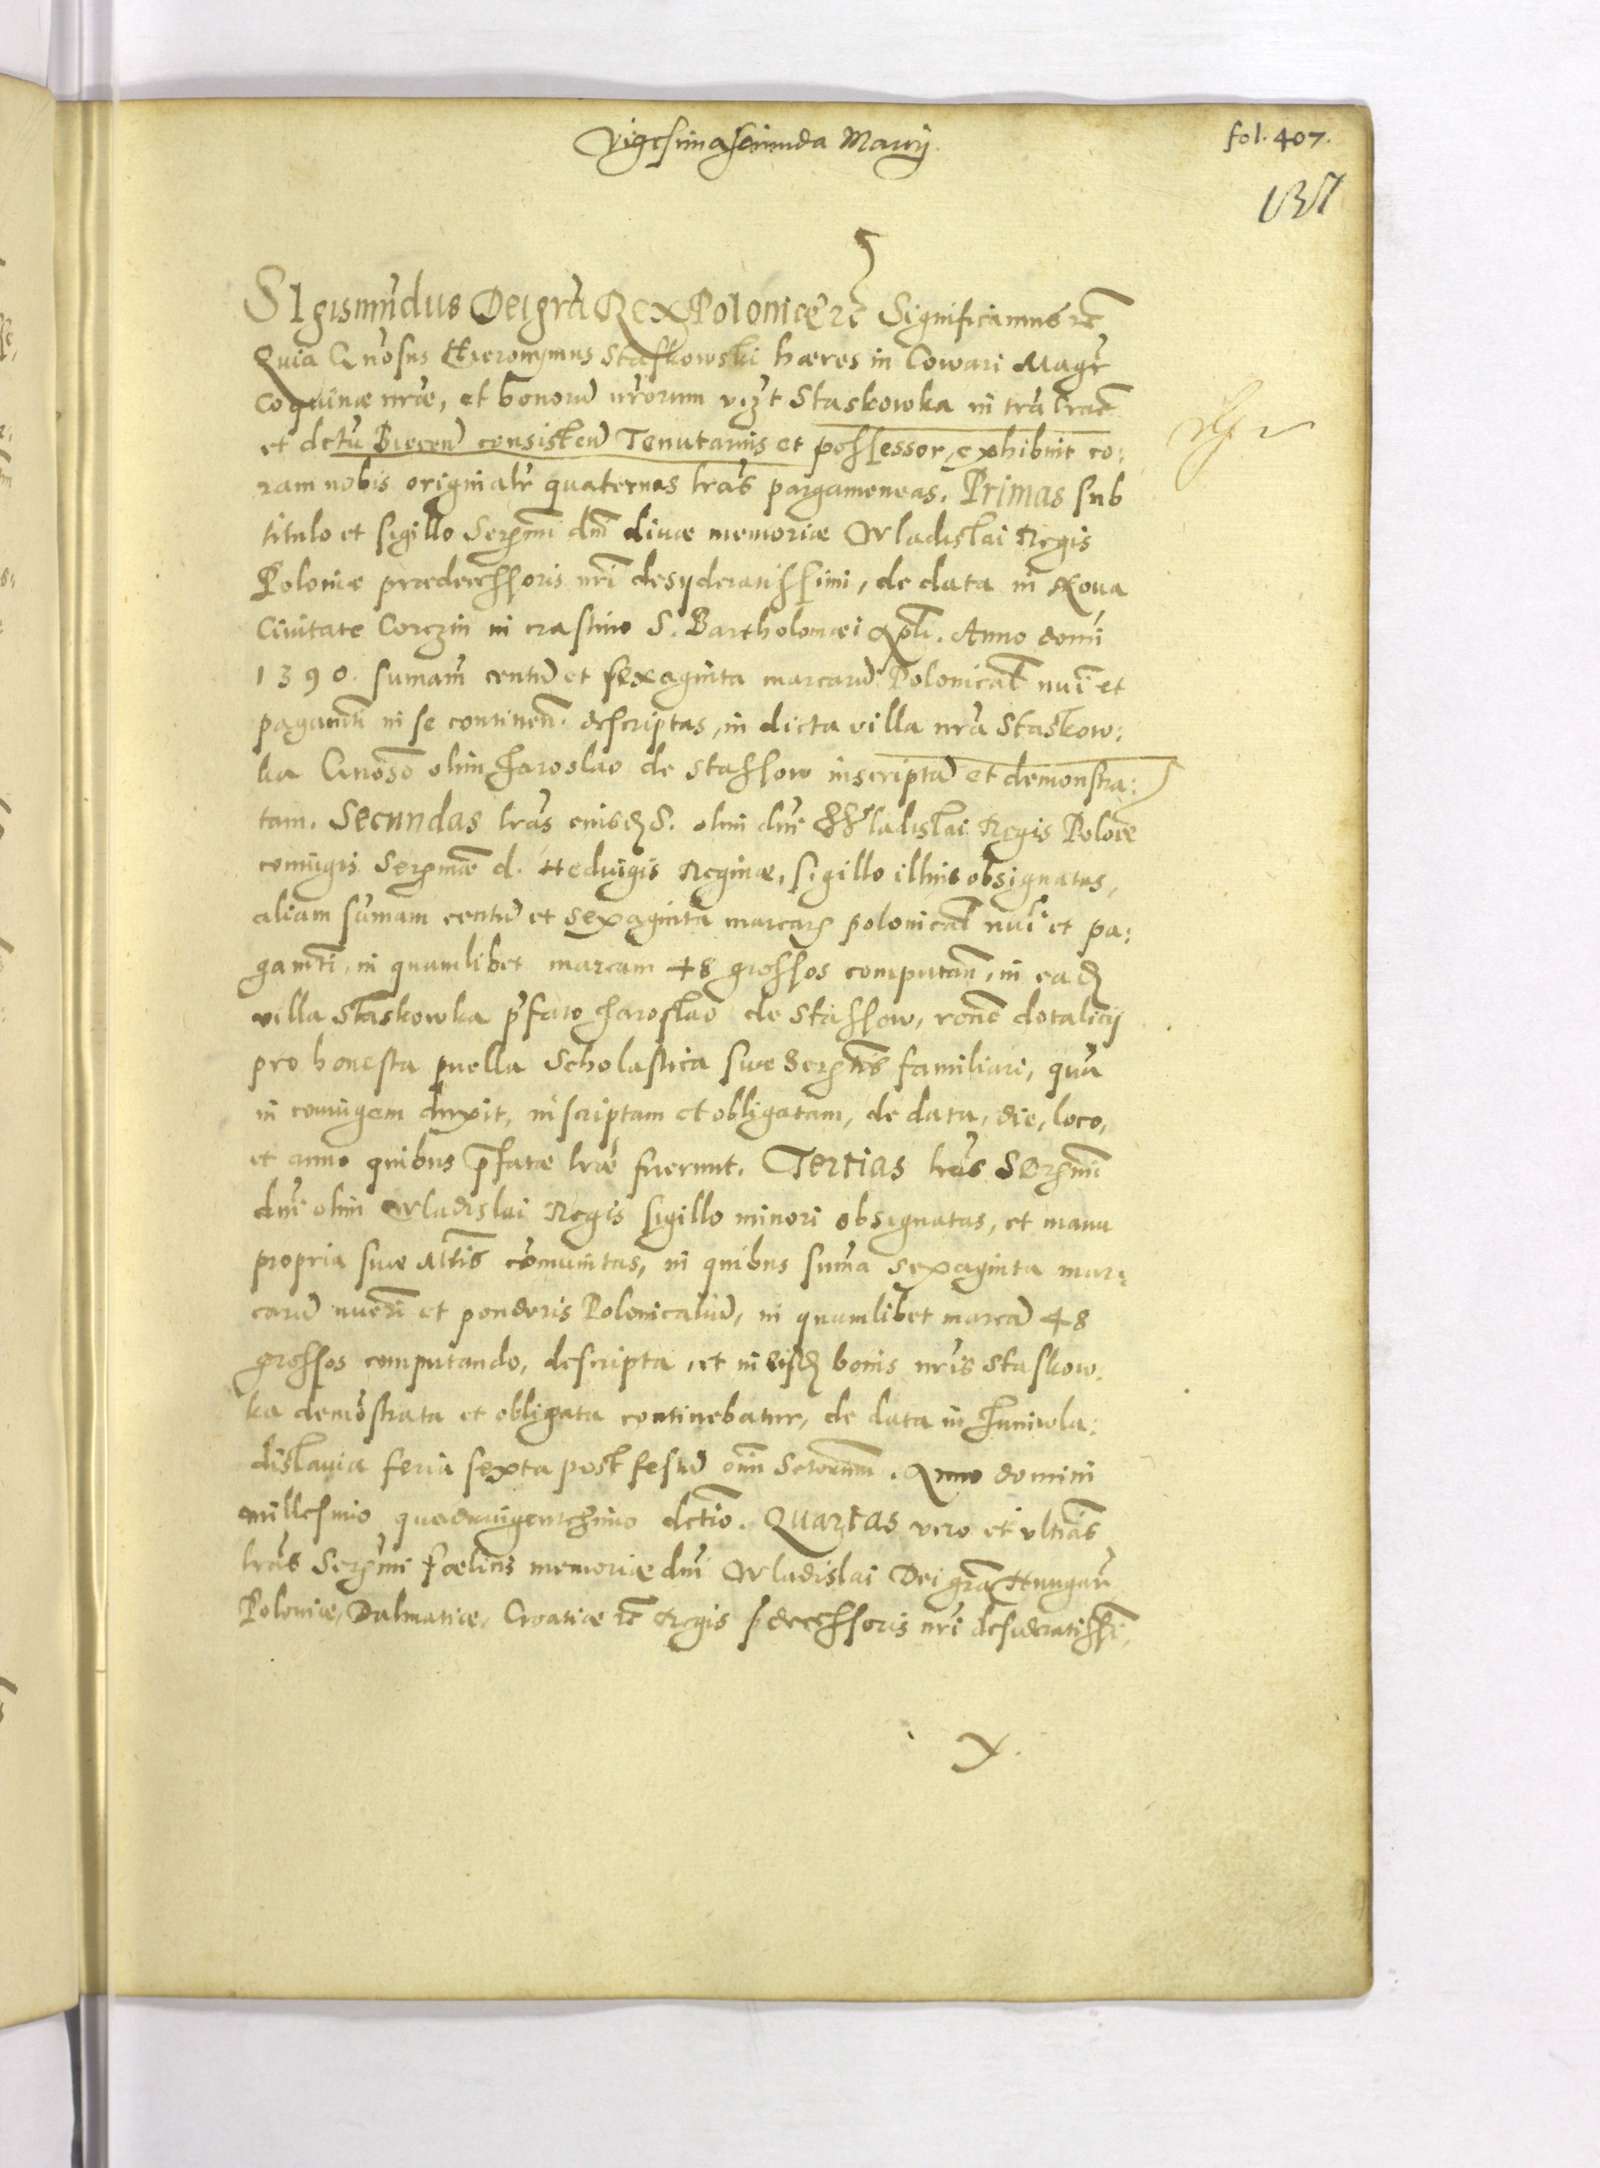 Vigesima secunda Marcij
fol. 407.
137
SIgismundus Dei gra Rex Poloniæ etc Significamus etc
Quia Gnosus Hieronymus Staskowski hæres in Cowari Magr
Coquinæ nræ, et bonorum nrorum vizt Staskowka in tra
et dctu Biecen consisten Tenutarius et possessor, exhibuit co:
ram nobis originalr quaternas lras pargameneas. Primas sub
titulo et sigillo Sermi dni divæ memoriæ Wladislai Regis
Poloniæ prædecessoris nri desyderatissimi, de data in Nova
Civitate Corczin in crastino S. Bartholomæi Apli. Anno domi
1390. sumam centum et sexaginta marcarum Polonical nui et
pagamti in se continen. descriptas, in dicta villa nra Staskow:
ka Gnoso olim Jaroslao de Stassow inscriptam et demonstra:
tam. Secundas lras eiusdem S. olim dni Wladislai Regis Poloiæ
coniugis Sermæ d. Hedvigis Reginæ, sigillo illius obsignatas,
aliam sumam centum et sexaginta marcarum polonical nui et pa:
gamti, in quamlibet marcam 48 grossos computan, in eadem
villa Staskowka pfato Jaroslao de Stassow, rone dotalicij
pro honesta puella Scholastica suæ Sertis familiari, qua
in coniugem duxit, inscriptam et obligatam, de data, die, loco,
et anno quibus pfatæ lræ fuerunt. Tertias lras Sermi
dni olim Wladislai Regis sigillo minori obsignatas, et manu
propria suæ Mtis comunitas, in quibus suma sexaginta mar:
carum nueri et ponderis Polonicalium, in quamlibet marcam 48
grossos computando, descripta, et in eisdem bonis nris Staskow:
ka demostrata et obligata continebatur, de data in Juniwla:
dislavia feria sexta post festum oim Sctorum. Anno domini
millesimo quadringentesimo dctio. Quartas vero et ultias
lras Sermi fœlicis memoriæ dni Wladislai Dei gra Hungar
Poloniæ, Dalmatiæ, Croatiæ etc Regis pdecessoris nri desideratissi,